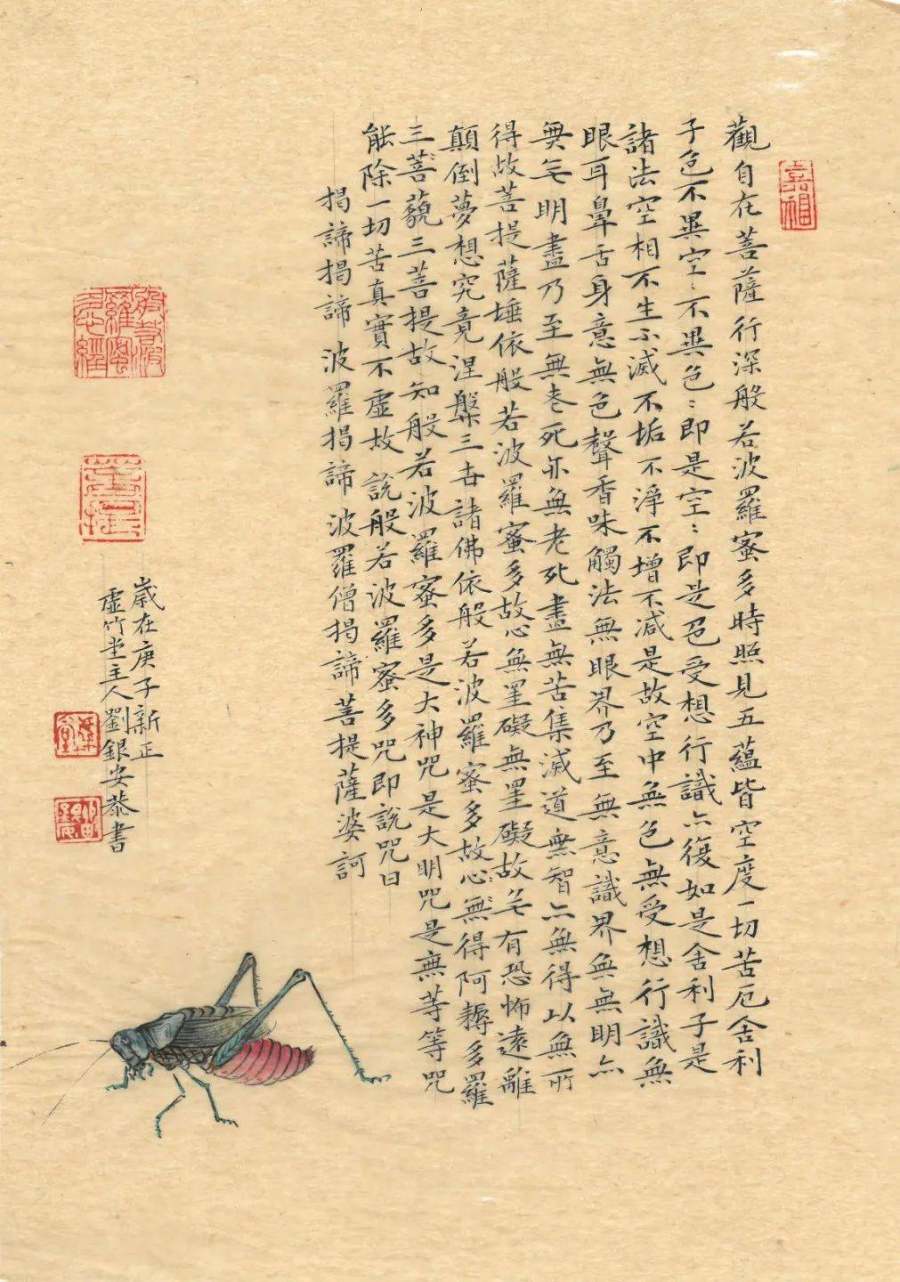 觀自在菩薩行深般若波羅蜜多時照見五蘊皆空度一切苦厄舍利
子色不異空〻不異色〻即是空〻即是色受想行識亦復如是舍利子是
諸法空相不生不滅不垢不淨不增不減是故空中無色無受想行識無
眼耳鼻舌身意無色聲香味觸法無眼界乃至無意識界無無明亦
無无明盡乃至無老死亦無老死盡無苦集滅道無智亦無得以無所
得故菩提薩埵依般若波羅蜜多故心無罣礙無罣礙故无有恐怖遠離
顛倒夢想究竟涅槃三世諸佛依般若波羅蜜多故心無得阿耨多羅
三菩藐三菩提故知般若波羅蜜多是大神咒是大明咒是無等等咒
能除一切苦真實不虛故說般若波羅蜜多咒即說咒曰
揭諦揭諦 波羅揭諦 波羅僧揭諦 菩提薩婆訶
歲在庚子新正
虛竹堂主人劉銀安恭書
菩提